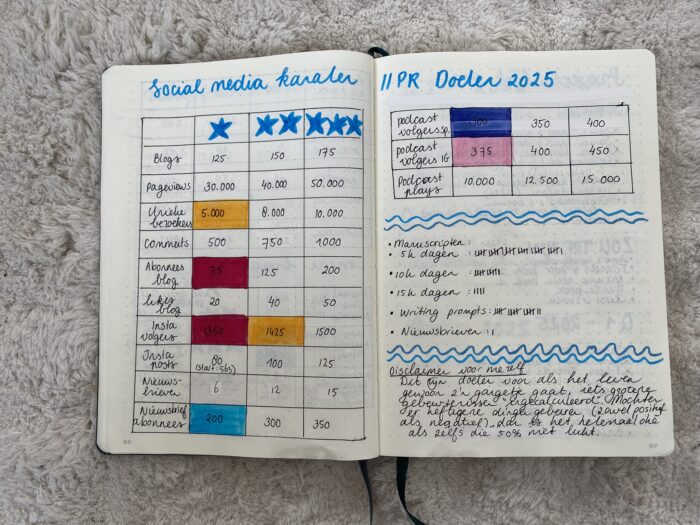 Social media kanalen
Blogs 125 150 175
Pageviews 30.000 40.000 50.000
Unieke bezoekers 5.000 8.000 10.000
Comments 500 750 1000
Abonnees blog 75 125 200
likes blog 20 40 50
Insta volgers 1350 1425 1500
Insta posts 80 (start: 565) 100 125
Nieuws-brieven 6 12 15
Nieuwsbrief abonnees 200 300 350
66
// PR Doelen 2025
podcast volgers sp. 300 350 400
podcast volgers IG 375 400 450
Podcast plays 10.000 12.500 15.000
• Manuscripten:
• 5k dagen :
• 10k dagen :
• 15k dagen : IIII
• Writing prompts :
• Nieuwsbrieven : I
Disclaimer voor mezelf
Dit zijn doelen voor als het leven
gewoon z'n gangetje gaat, iets grotere
gebeurtenissen "ingekalculeerd". Mochten
er heftigere dingen gebeuren (zowel positief
als negatief) dan is het helemaal oké
als zelfs die 50% niet lukt.
67